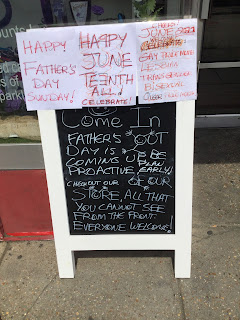 HAPPY
FATHER'S
DAY
SUNDAY!
HAPPY
JUNE
TEENTH
ALL!
CELEBRATE!
JUNE
CELEBRATE
GAY PRIDE MONTH
LESBIAN
TRANSSEXUAL
BISEXUAL
Come In
FATHER'S
DAY IS
COMING UP BE
PROACTIVE, EARLY!
CHECKOUT OUR
STORE, ALL THAT
YOU CANNOT SEE
FROM THE FRONT.
EVERYONE WELCOME!